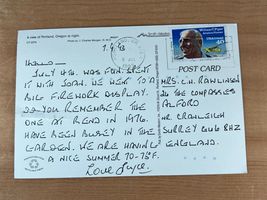 A view of Portland, Oregon at night.
7.9.93
POST CARD
USAirmail
JULY 4TH. WAS FUN. SPENT
IT WITH JOAN. WE WENT TO A
BIG FIREWORK DISPLAY.
DO YOU REMEMBER THE
ONE AT BEND IN 1976.
HAVE BEEN BUSY IN THE
GARDEN. WE ARE HAVING
A NICE SUMMER 70-75°F.
Love Joyce.
MRS. C.H. RAWLINSON
26 THE COMPASSES
ALFORD
NR. CRANLEIGH
SURREY GU6 8HZ
ENGLAND.